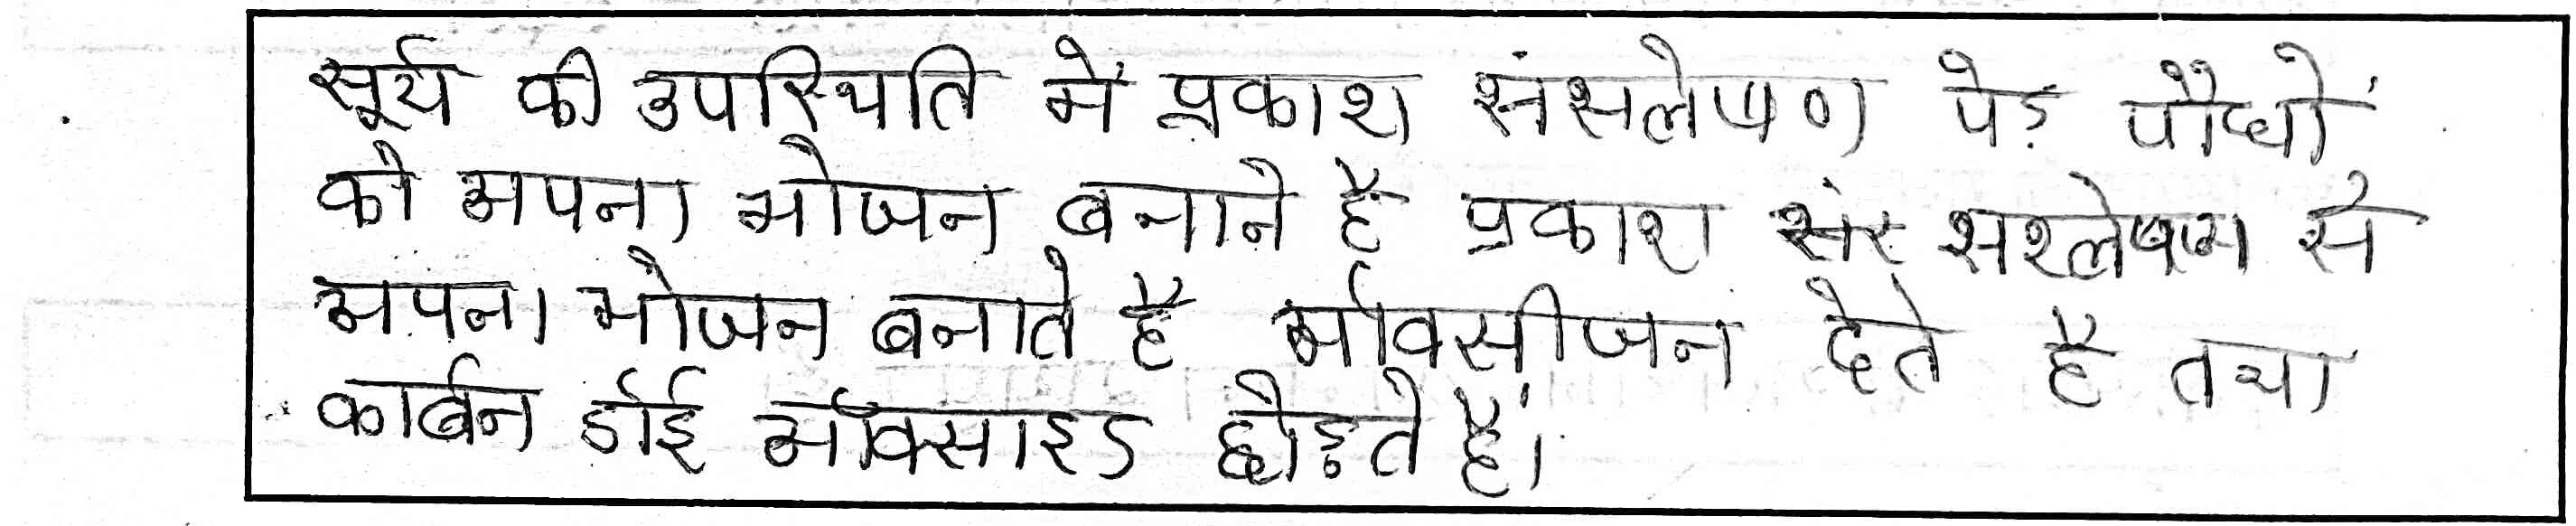 सूर्य की उपस्थिति में प्रकाश संसलेषण पेड़ पौधों
को अपना भोजन बनाने है प्रकाश संश्लेषण से
अपना भोजन बनाते है ऑक्सीजन देते है तथा
कार्बन डाई ऑक्साइड छोड़ते हैं।